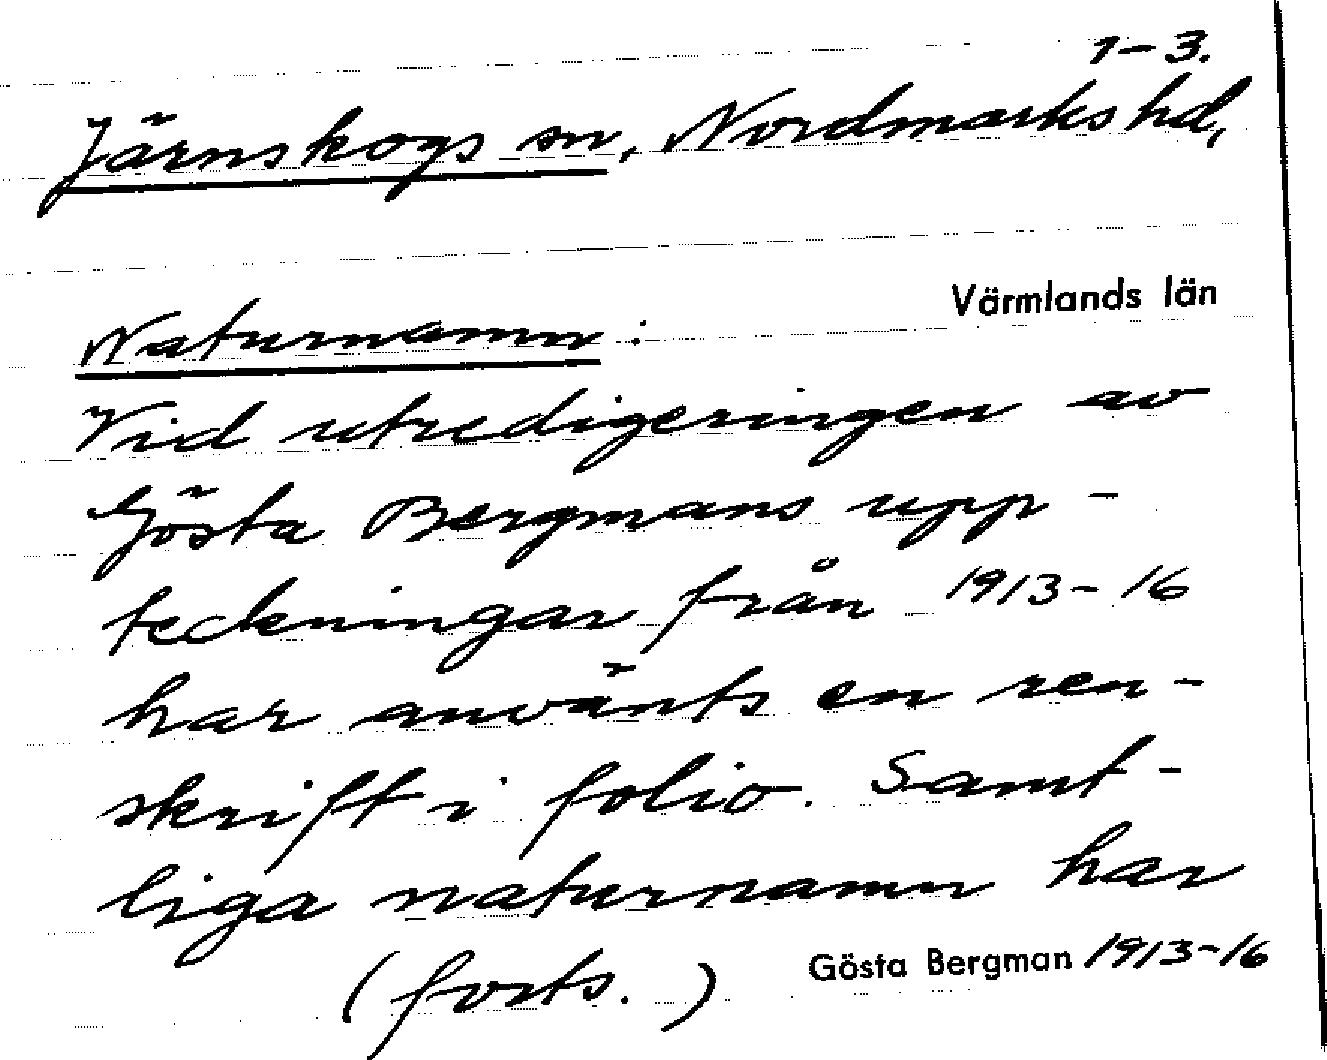 1-3.
Järnskogs sn, Nordmarks hd,
Värmlands län
Naturnamn:
Vid utredigeringen av
Gösta Bergmans upp-
teckningar från 1913-16
har använts en ren-
skrift i folio. Samt-
liga naturnamn har
(forts.)
Gösta Bergman 1913-16